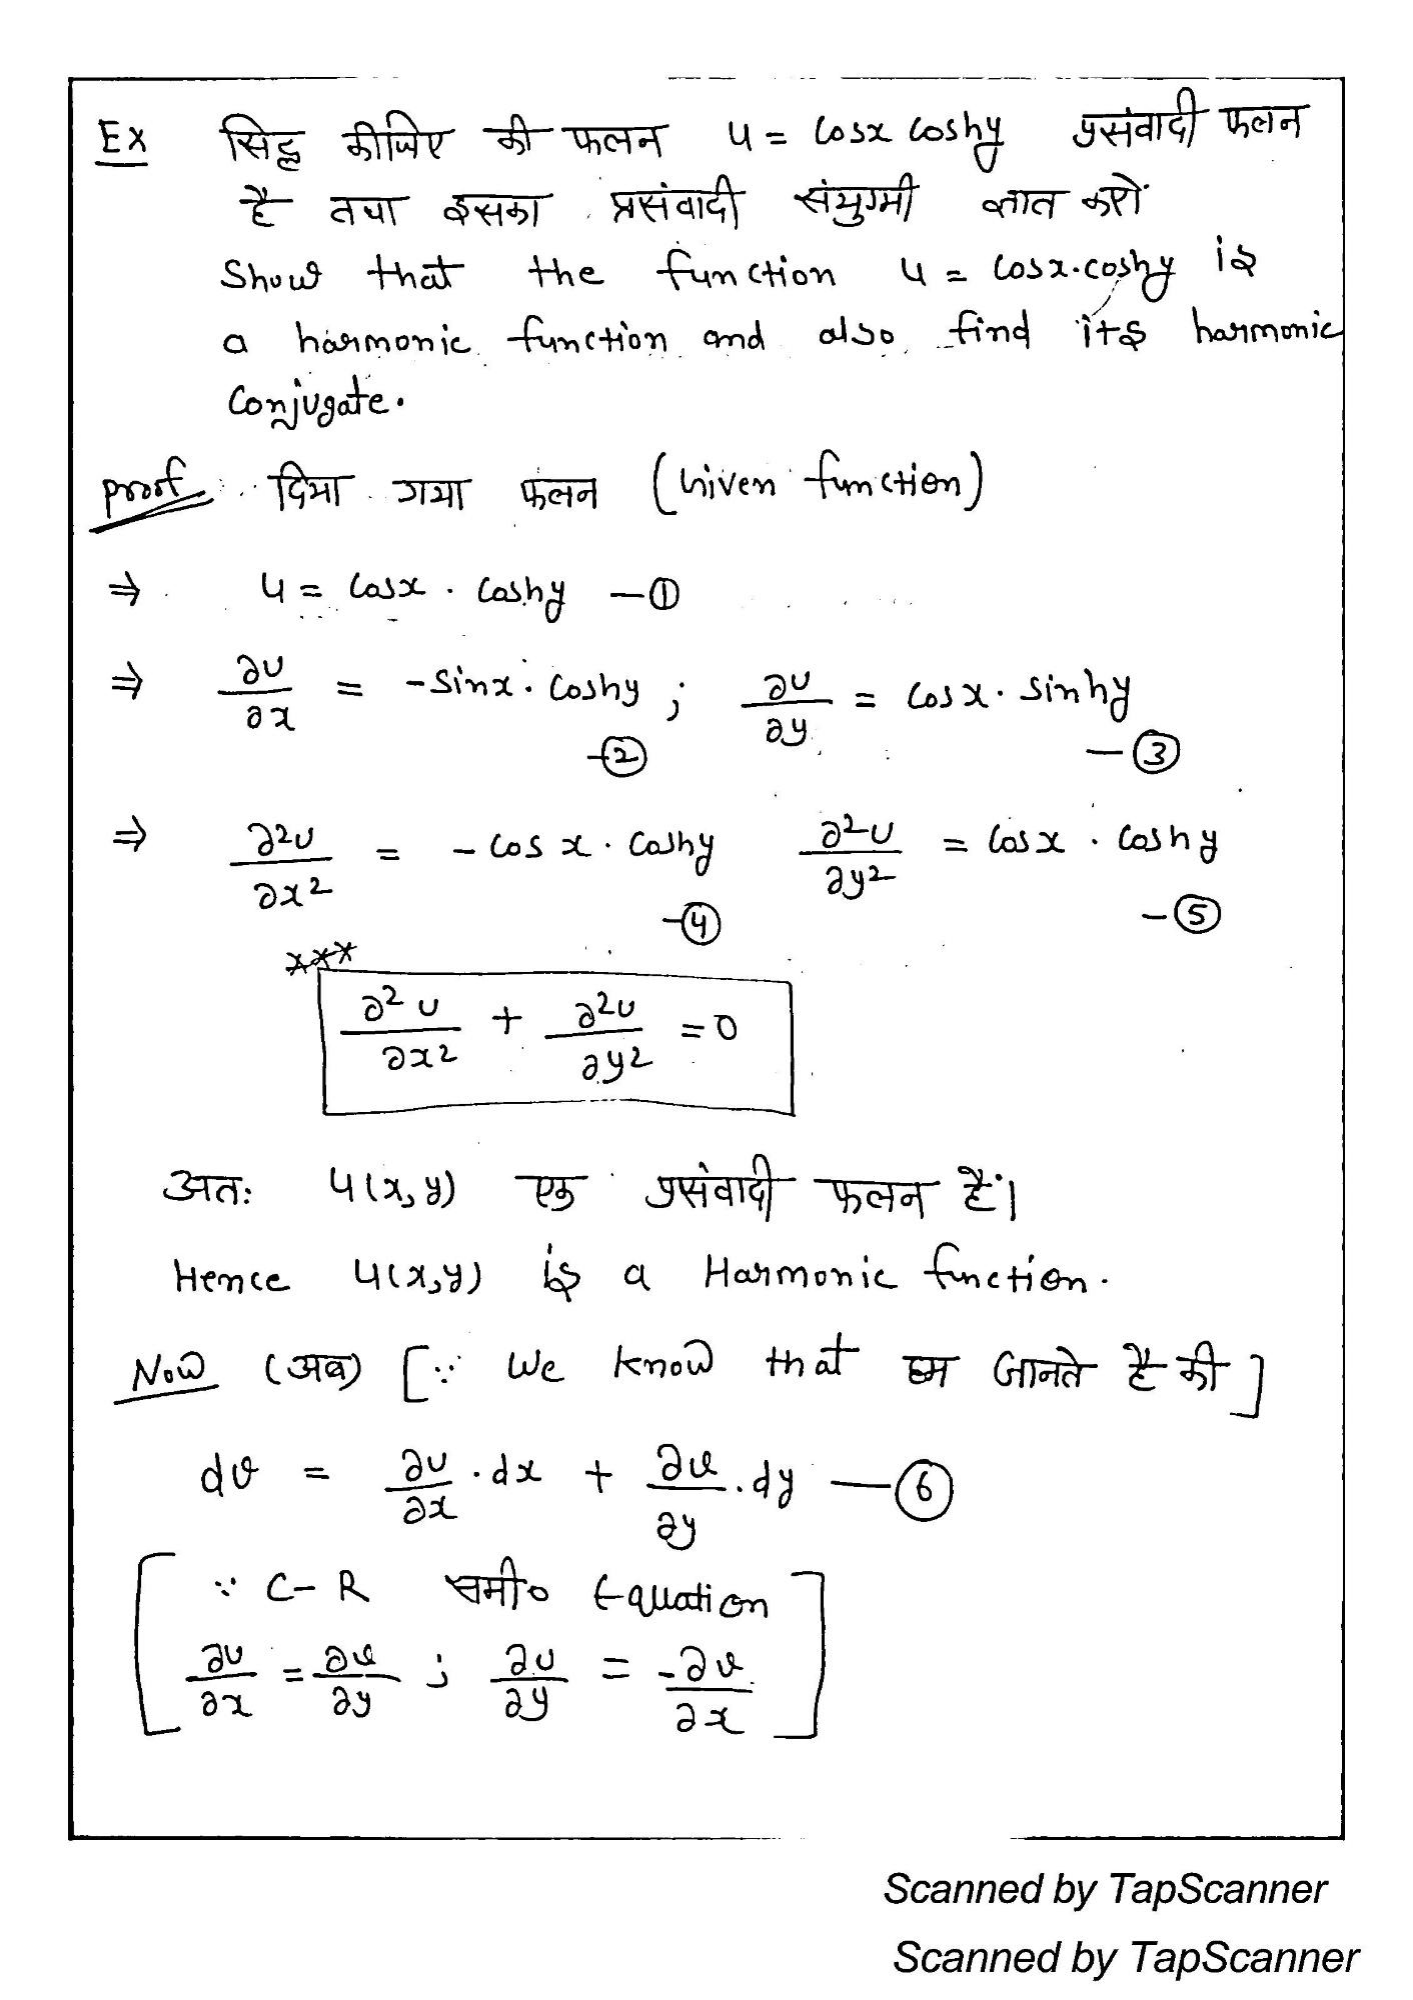 Ex सिद्ध कीजिए की फलन u = cosx coshy प्रसंवादी फलन
है तथा इसका प्रसंवादी संयुग्मी ज्ञात करो
Show that the function u = cosx.coshy is
a harmonic function and also find its harmonic
Conjugate.
Proof दिया गया फलन (Given function)
⇒ u = cosx . coshy —①
⇒ ∂u/∂x = -sinx . coshy ; ∂u/∂y = cosx . sinhy
-② —③
⇒ ∂²u/∂x² = - cos x . coshy ∂²u/∂y² = cosx . coshy
-④ -⑤
***
∂²u/∂x² + ∂²u/∂y² = 0
अतः u(x,y) एक प्रसंवादी फलन हैं।
Hence u(x,y) is a Harmonic function.
Now (अब) [∵ We know that हम जानते है की]
dv = ∂u/∂x .dx + ∂v/∂y .dy —⑥
[∵ C-R समी० Equation
∂u/∂x = ∂v/∂y ; ∂u/∂y = -∂v/∂x]
Scanned by TapScanner
Scanned by TapScanner